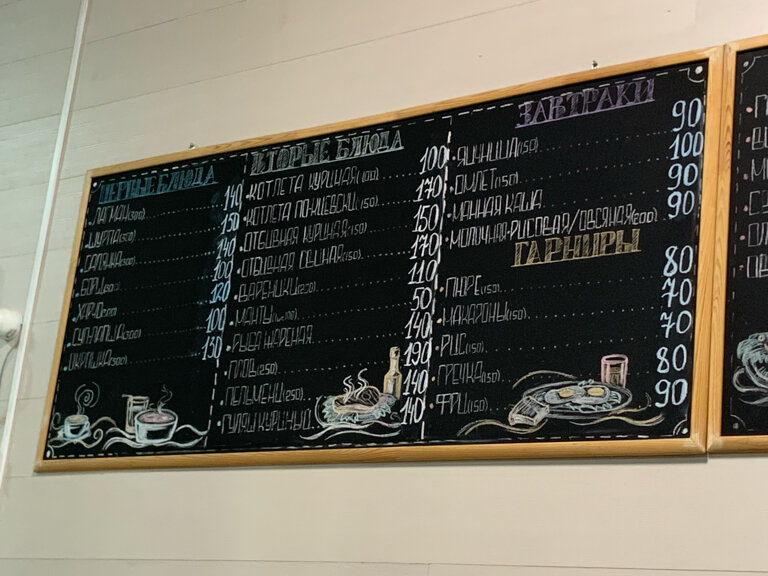 ПЕРВЫЕ БЛЮДА
ЛАГМАН(300) 140
ШУРПА(300) 150
СОЛЯНКА(300) 140
БОРЩ(300) 100
ХАРЧО(300) 120
СУП-ЛАПША(300) 100
ОКРОШКА(300) 130
ВТОРЫЕ БЛЮДА
КОТЛЕТА КУРИНАЯ(100) 100
КОТЛЕТА ПО-КИЕВСКИ(150) 170
ОТБИВНАЯ КУРИНАЯ(150) 150
ОТБИВНАЯ СВИНАЯ(150) 170
ВАРЕНИКИ(250) 110
МАНТЫ 50
РЫБА ЖАРЕНАЯ 140
ПЛОВ(250) 190
ПЕЛЬМЕНИ(250) 140
ГУЛЯШ КУРИНЫЙ 140
ЗАВТРАКИ
ЯИЧНИЦА(150) 90
ОМЛЕТ(150) 100
МАННАЯ КАША 90
МОЛОЧНАЯ-РИСОВАЯ/ОВСЯНАЯ(200) 90
ГАРНИРЫ
ПЮРЕ(150) 80
МАКАРОНЫ(150) 70
РИС(150) 70
ГРЕЧКА(150) 80
ФРИ(150) 90